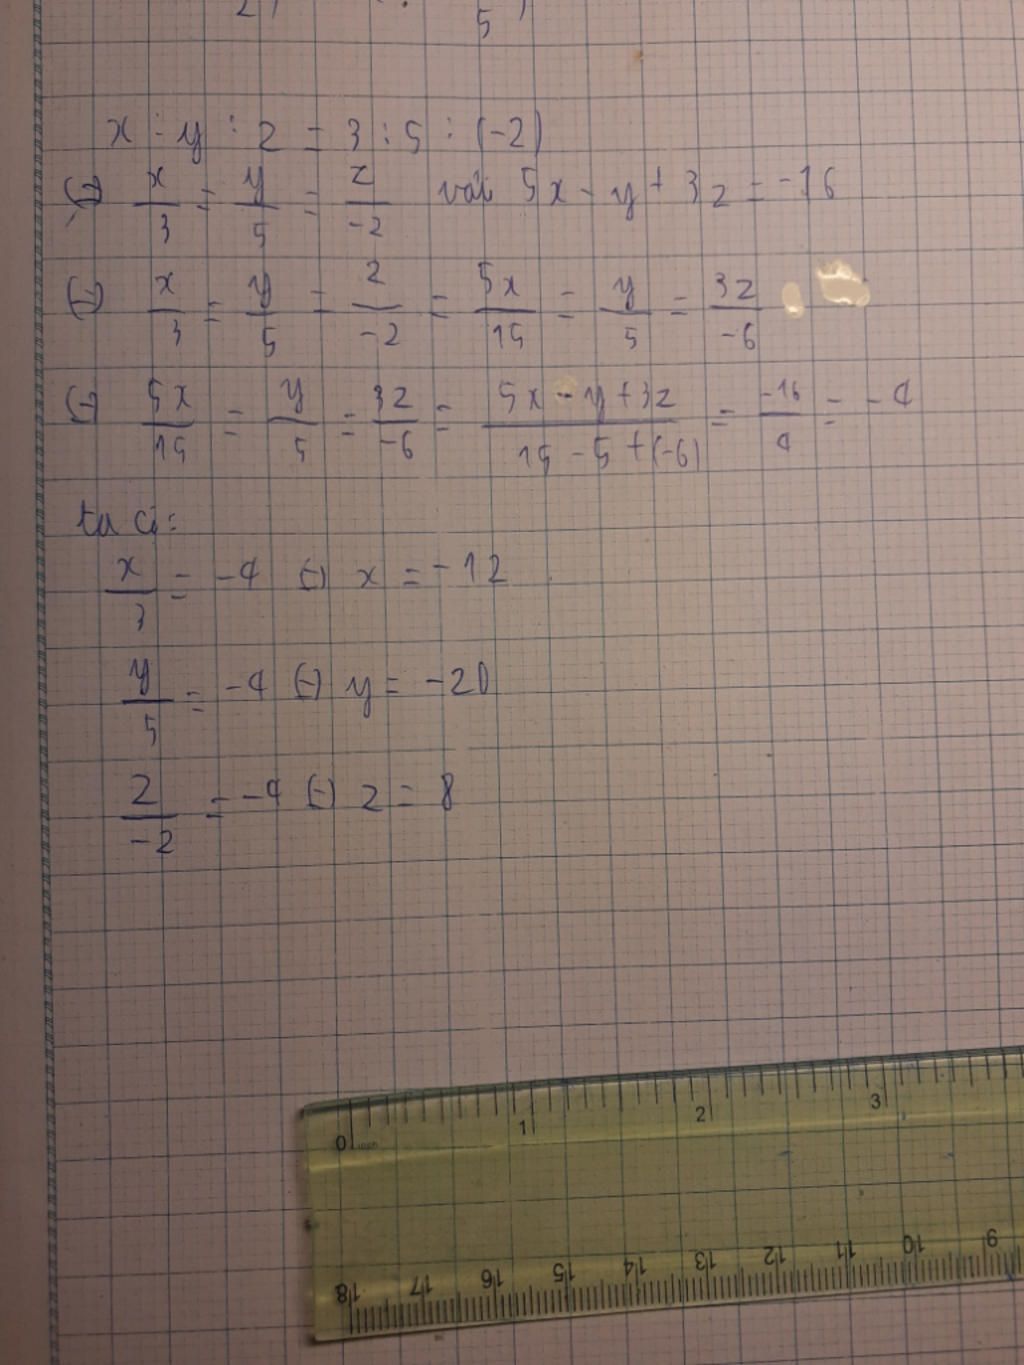 5
x : y : z = 3 : 5 : (-2)
(=) x/3 = y/5 = z/-2 với 5x - y + 3z = -16
(=) x/3 = y/5 = z/-2 = 5x/15 = y/5 = 3z/-6
(=) 5x/15 = y/5 = 3z/-6 = 5x - y + 3z/15 - 5 + (-6) = -16/4 = -4
ta có:
x/3 = -4 (=) x = -12
y/5 = -4 (=) y = -20
z/-2 = -4 (=) z = 8
0 inch 1 2 3
18 17 16 15 14 13 12 11 10 9